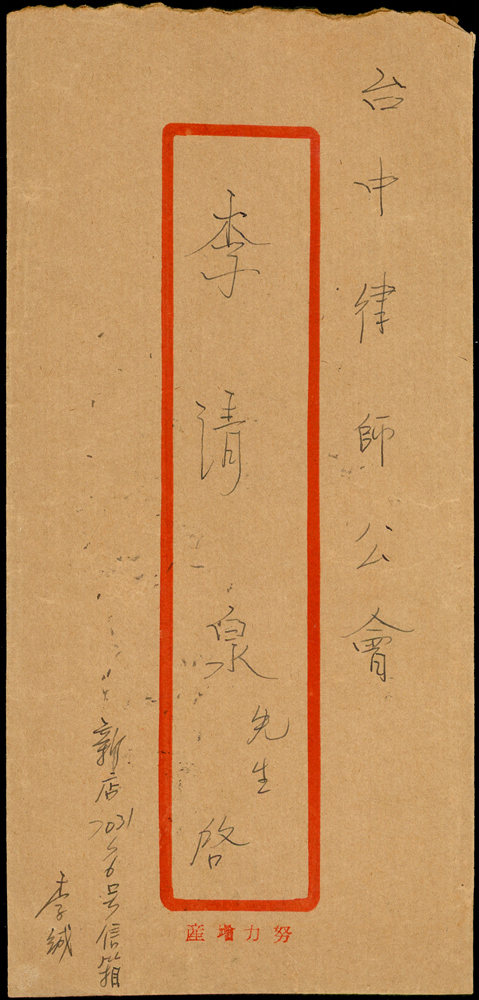 台中律師公會
李清泉先生啓
新店7031之6号信箱
李緘
努力增產